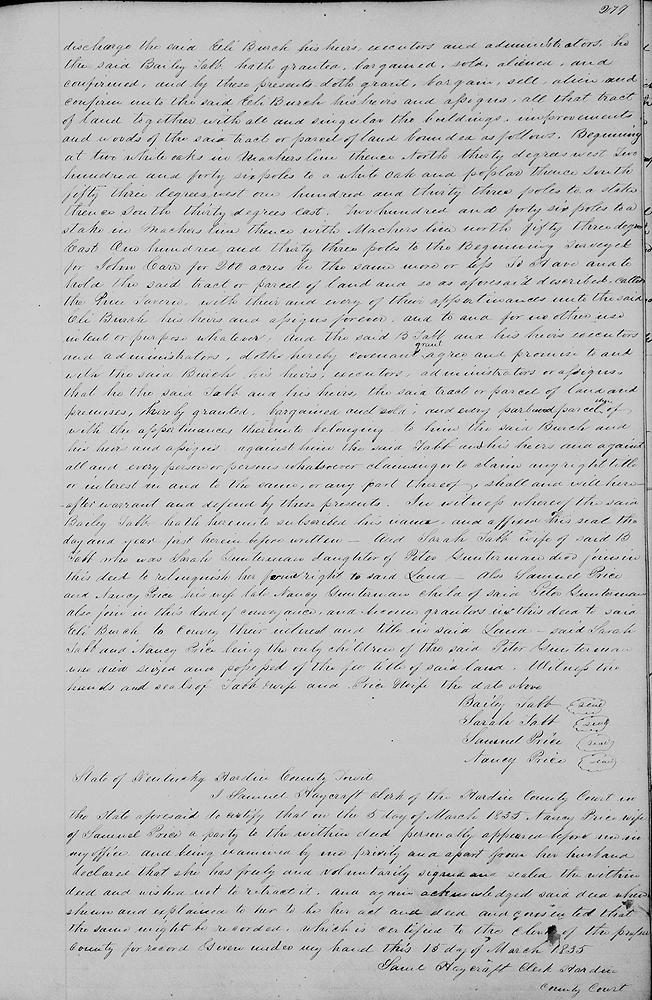 279
discharge the said Eli Burch his heirs, executors and administrators, he
the said Baily Tabb hath granted, bargained, sold, aliened, and
confirmed, and by these presents doth grant, bargain, sell, alien and
confirm unto the said Eli Burch his heirs and assigns, all that tract
of land together with all and singular the buildings, improvements
and woods of the said tract or parcel of land bounded as follows. Beginning
at two white oaks in Machers line thence North thirty degrees west Two
hundred and forty six poles to a white oak and poplar thence South
fifty three degrees west one hundred and thirty three poles to a stake
thence South thirty degrees East. Two hundred and forty six poles to a
stake in Machers line thence with Machers line north fifty three degrees
East One hundred and thirty three poles to the Beginning Surveyed
for John Carr for 200 acres be the same more or less To Have and to
hold the said tract or parcel of land and so as aforesaid described, called
the Price Tavern, with their and every of their appertinances unto the said
Eli Burch his heirs and assigns forever, and to and for no other use
intent or purpose whatever, And the said B Tabb and his heirs executors
and administrators, doth hereby covenant grant agree and promise to and
with the said Burch his heirs, executors, administrators or assigns,
that he the said Tabb and his heirs, the said tract or parcel of land and
premises, hereby granted, bargained and sold; and every part and parcel of
with the appertinances thereunto belonging to him the said Burch and
his heirs and assigns against him the said Tabb and his heirs and against
all and every person or persons whatsoever claiming or to claim any right title
or interest in and to the same, or any part thereof, shall and will here
after warrant and defend by these presents. In witness whereof the said
Baily Tabb hath hereunto subscribed his name, and affixed his seal the
day and year first herein before written - And Sarah Tabb wife of said B
Tabb who was Sarah Gunterman daughter of Peter Gunterman decd joins in
this deed to relinquish her right to said Land - Also Samuel Price
and Nancy Price his wife late Nancy Gunterman child of said Peter Gunterman
also join in this deed of conveyance, and become grantors in this deed to said
Eli Burch to convey their interest and title in said Land - said Sarah
Tabb and Nancy Price being the only children of the said Peter Gunterman
who died seized and possessed of the fee title of said land. Witness the
hands and seals of Tabb & wife and Price & wife the date above
Baily Tabb (seal)
Sarah Tabb (seal)
Samuel Price (seal)
Nancy Price (seal)
State of Kentucky Hardin County Towit
I Samuel Haycraft Clerk of the Hardin County Court in
the State aforesaid do certify that on the 5 day of March 1835 Nancy Price wife
of Samuel Price a party to the within deed personally appeared before me in
my office and being examined by me privily and apart from her husband
declared that she has freely and voluntarily signed and sealed the within
deed and wished not to retract it, and again acknowledged said deed when
shewn and explained to her to be her act and deed and consented that
the same might be recorded, which is certified to the Clerk of the proper
County for record Given under my hand this 15 day of March 1835
Saml Haycraft Clerk Hardin
County Court